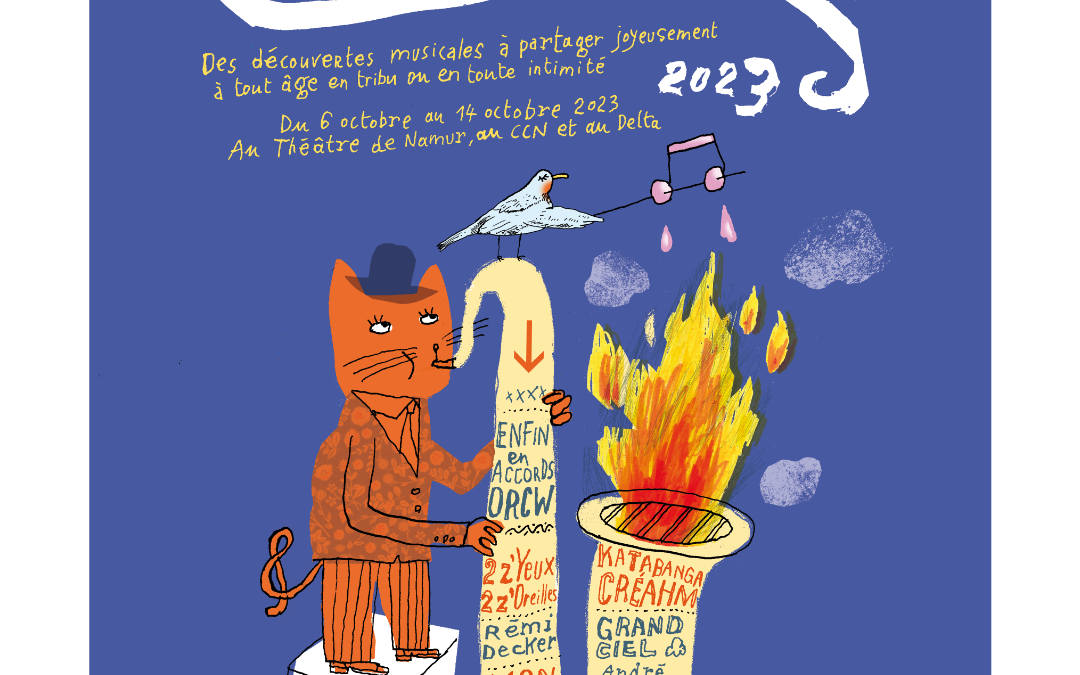 Des découvertes musicales à partager joyeusement
à tout âge en tribu ou en toute intimité
2023
Du 6 octobre au 14 octobre 2023
Au Théâtre de Namur, au CCN et au Delta
xxxx
ENFIN
en
ACCORDS
ORCW
2 z'Yeux
2 z'Oreilles
Rémi
Decker
KATABANGA
CRÉAHM
GRAND
CIEL
André